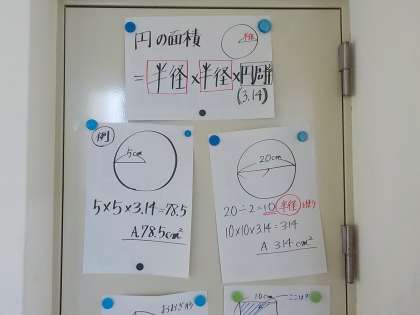 円の面積
半径
=半径×半径×円周率
(3.14)
例
5cm
5×5×3.14=78.5
A.78.5cm²
20cm
20÷2=10 半径
10×10×3.14=314
A 314cm²
おおぎ形
10cm